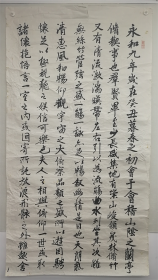 永和九年歲在癸丑暮春之初會于會稽山陰之蘭亭
脩禊事也羣賢畢至少長咸集此地有崇山峻領茂林脩竹
又有清流激湍暎帶左右引以為流觴曲水列坐其次雖
無絲竹管弦之盛一觴一詠亦足以暢敘幽情是日也天朗氣
清惠風和暢仰觀宇宙之大俯察品類之盛所以遊目騁
懷足以極視聽之娛信可樂也夫人之相與俯仰一世或取
諸懷抱悟言一室之內或因寄所託放浪形骸之外雖趣舍